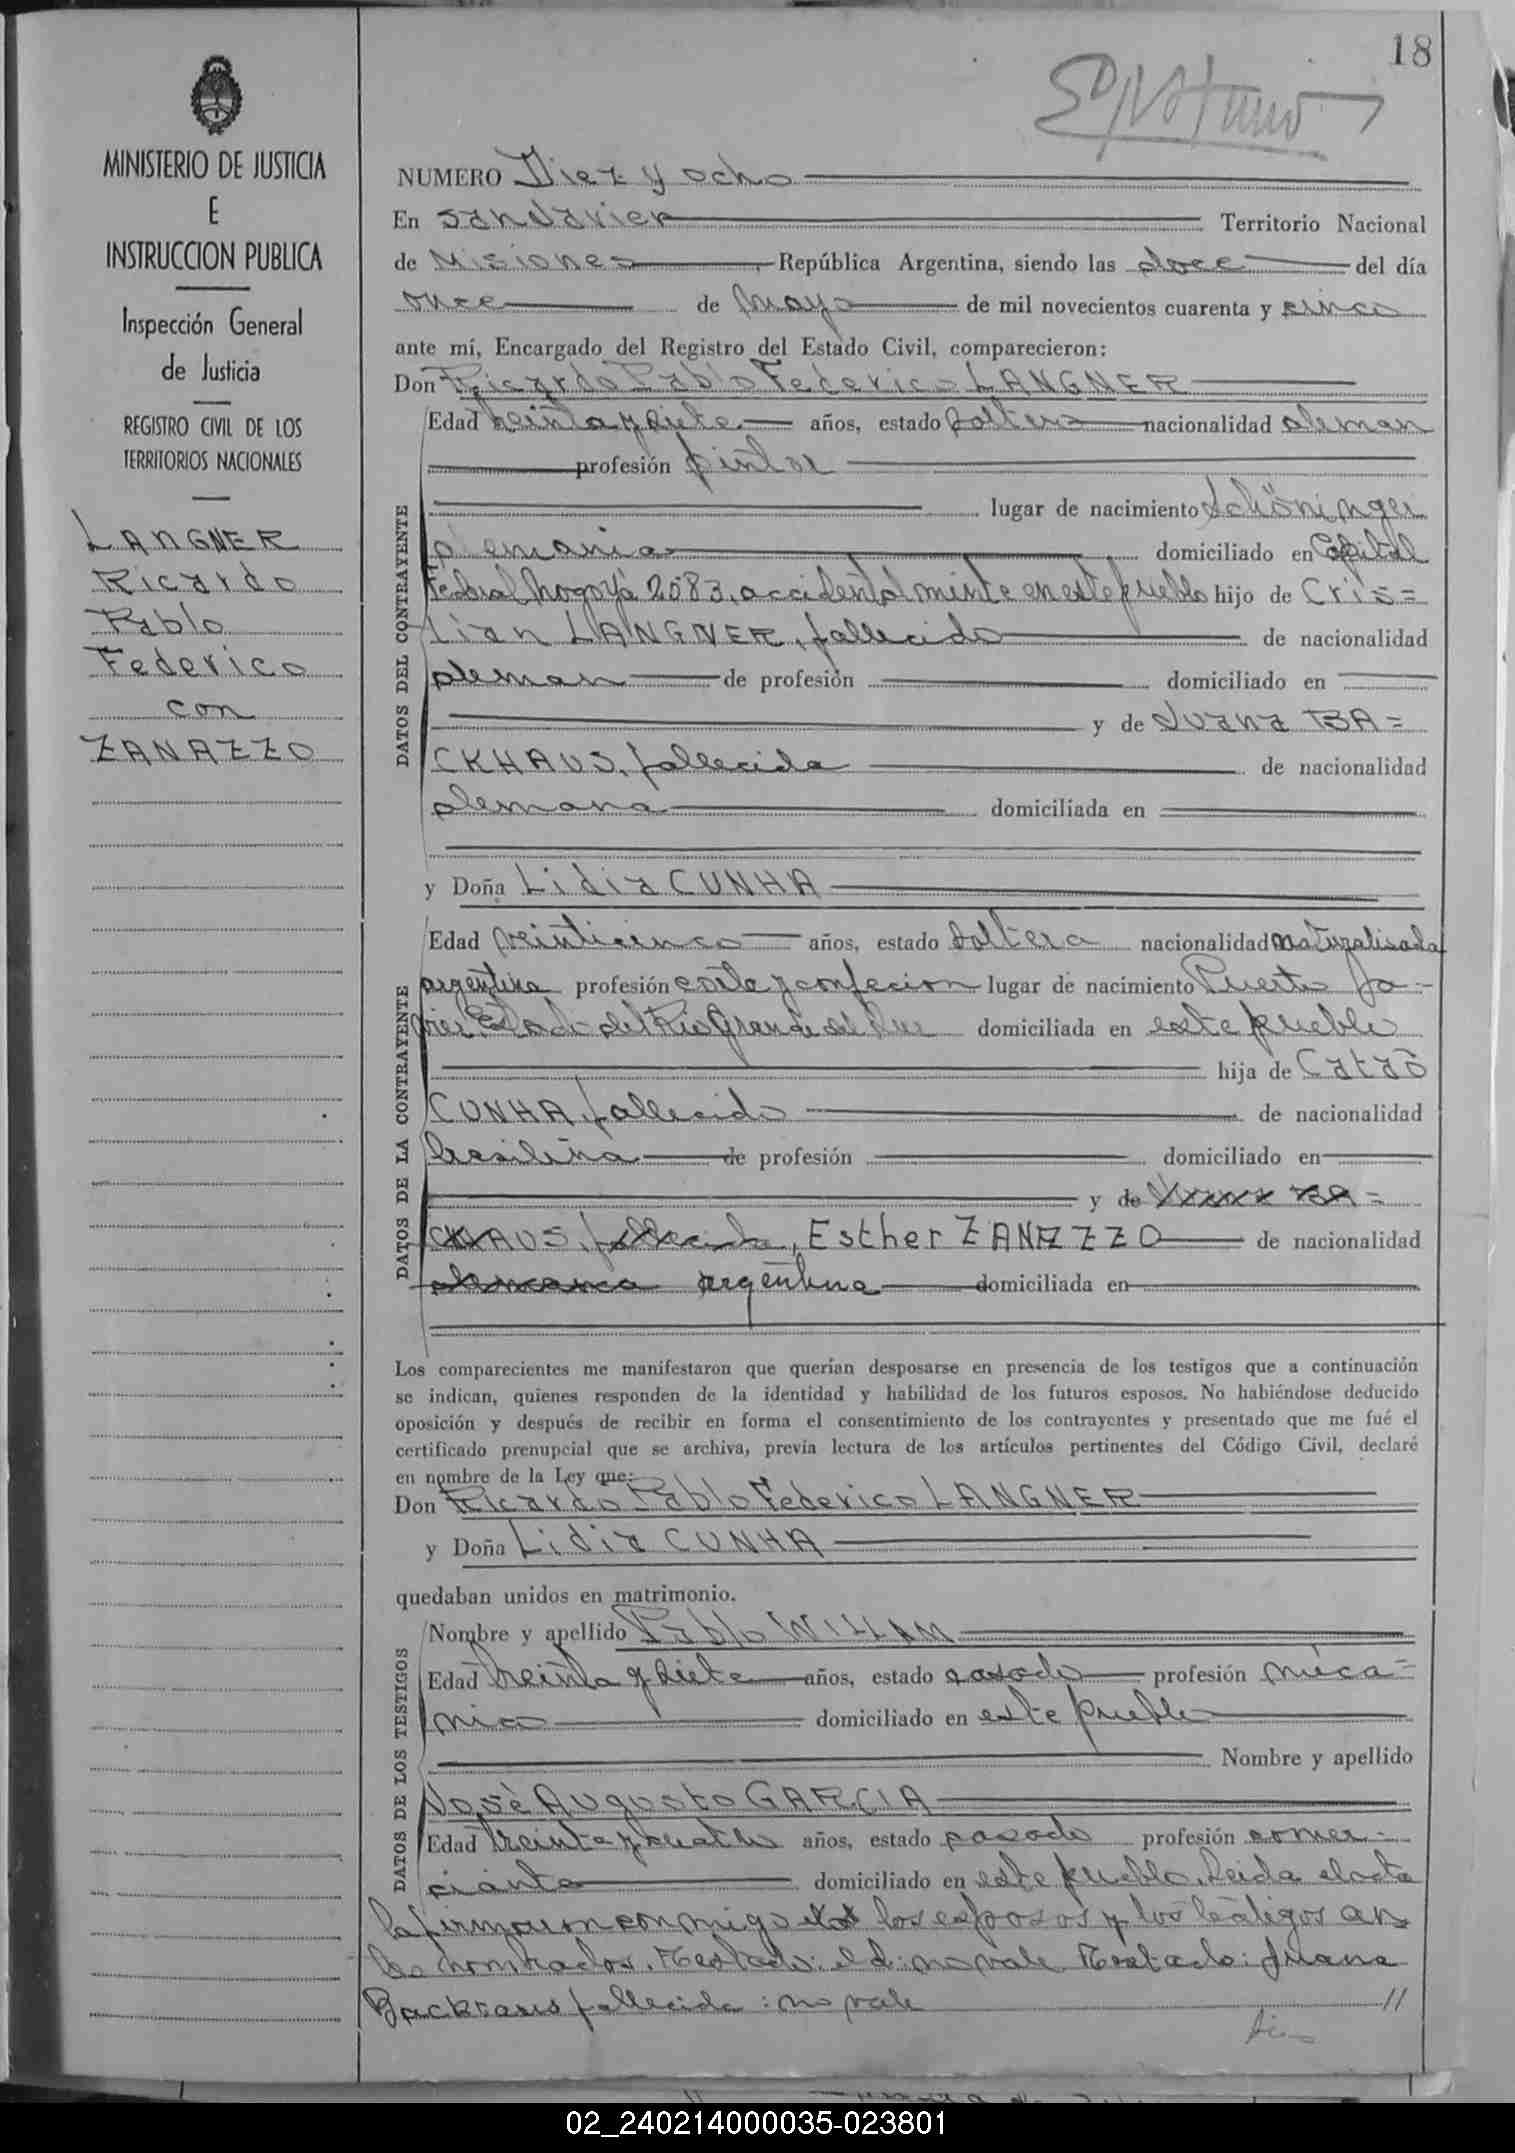 18
MINISTERIO DE JUSTICIA
E
INSTRUCCION PUBLICA
Inspección General
de Justicia
REGISTRO CIVIL DE LOS
TERRITORIOS NACIONALES
LANGNER
Ricardo
Pablo
Federico
con
ZANAZZO
NUMERO Diez y ocho
En San Javier Territorio Nacional
de Misiones República Argentina, siendo las doce del día
once de mayo de mil novecientos cuarenta y cinco
ante mí, Encargado del Registro del Estado Civil, comparecieron:
Don Ricardo Pablo Federico LANGNER
DATOS DEL CONTRAYENTE
Edad treinta y siete años, estado soltero nacionalidad aleman
profesión pintor
lugar de nacimiento Schöningen
alemania domiciliado en Capital
Federal, Nogoyá 2083, accidentalmente en este pueblo hijo de Cris=
tian LANGNER, fallecido de nacionalidad
aleman de profesión domiciliado en
y de Juana BA=
CKHAUS, fallecida de nacionalidad
alemana domiciliada en
y Doña Lidia CUNHA
DATOS DE LA CONTRAYENTE
Edad veinticinco años, estado soltera nacionalidad naturalisada
argentina profesión corte y confecion lugar de nacimiento Puerto Ja-
vier Estado del Rio Grande del Sur domiciliada en este pueblo
hija de Cataõ
CUNHA, fallecido de nacionalidad
brasileña de profesión domiciliado en
y de Juana BA=
CKHAUS, fallecida, Esther ZANAZZO de nacionalidad
alemana argentina domiciliada en
Los comparecientes me manifestaron que querían desposarse en presencia de los testigos que a continuación
se indican, quienes responden de la identidad y habilidad de los futuros esposos. No habiéndose deducido
oposición y después de recibir en forma el consentimiento de los contrayentes y presentado que me fué el
certificado prenupcial que se archiva, previa lectura de los artículos pertinentes del Código Civil, declaré
en nombre de la Ley que:
Don Ricardo Pablo Federico LANGNER
y Doña Lidia CUNHA
quedaban unidos en matrimonio.
DATOS DE LOS TESTIGOS
Nombre y apellido Pablo WILLAM
Edad treinta y siete años, estado casado profesión meca=
nico domiciliado en este pueblo
Nombre y apellido
José Augusto GARCIA
Edad treinta y cuatro años, estado casado profesión comer-
ciante domiciliado en este pueblo. Leida el acta
la firmaron conmigo los esposos y los testigos an
tes nombrados. Testado: el d: no vale. Testado: Juana
Backhaus fallecida: no vale //
02_240214000035-023801